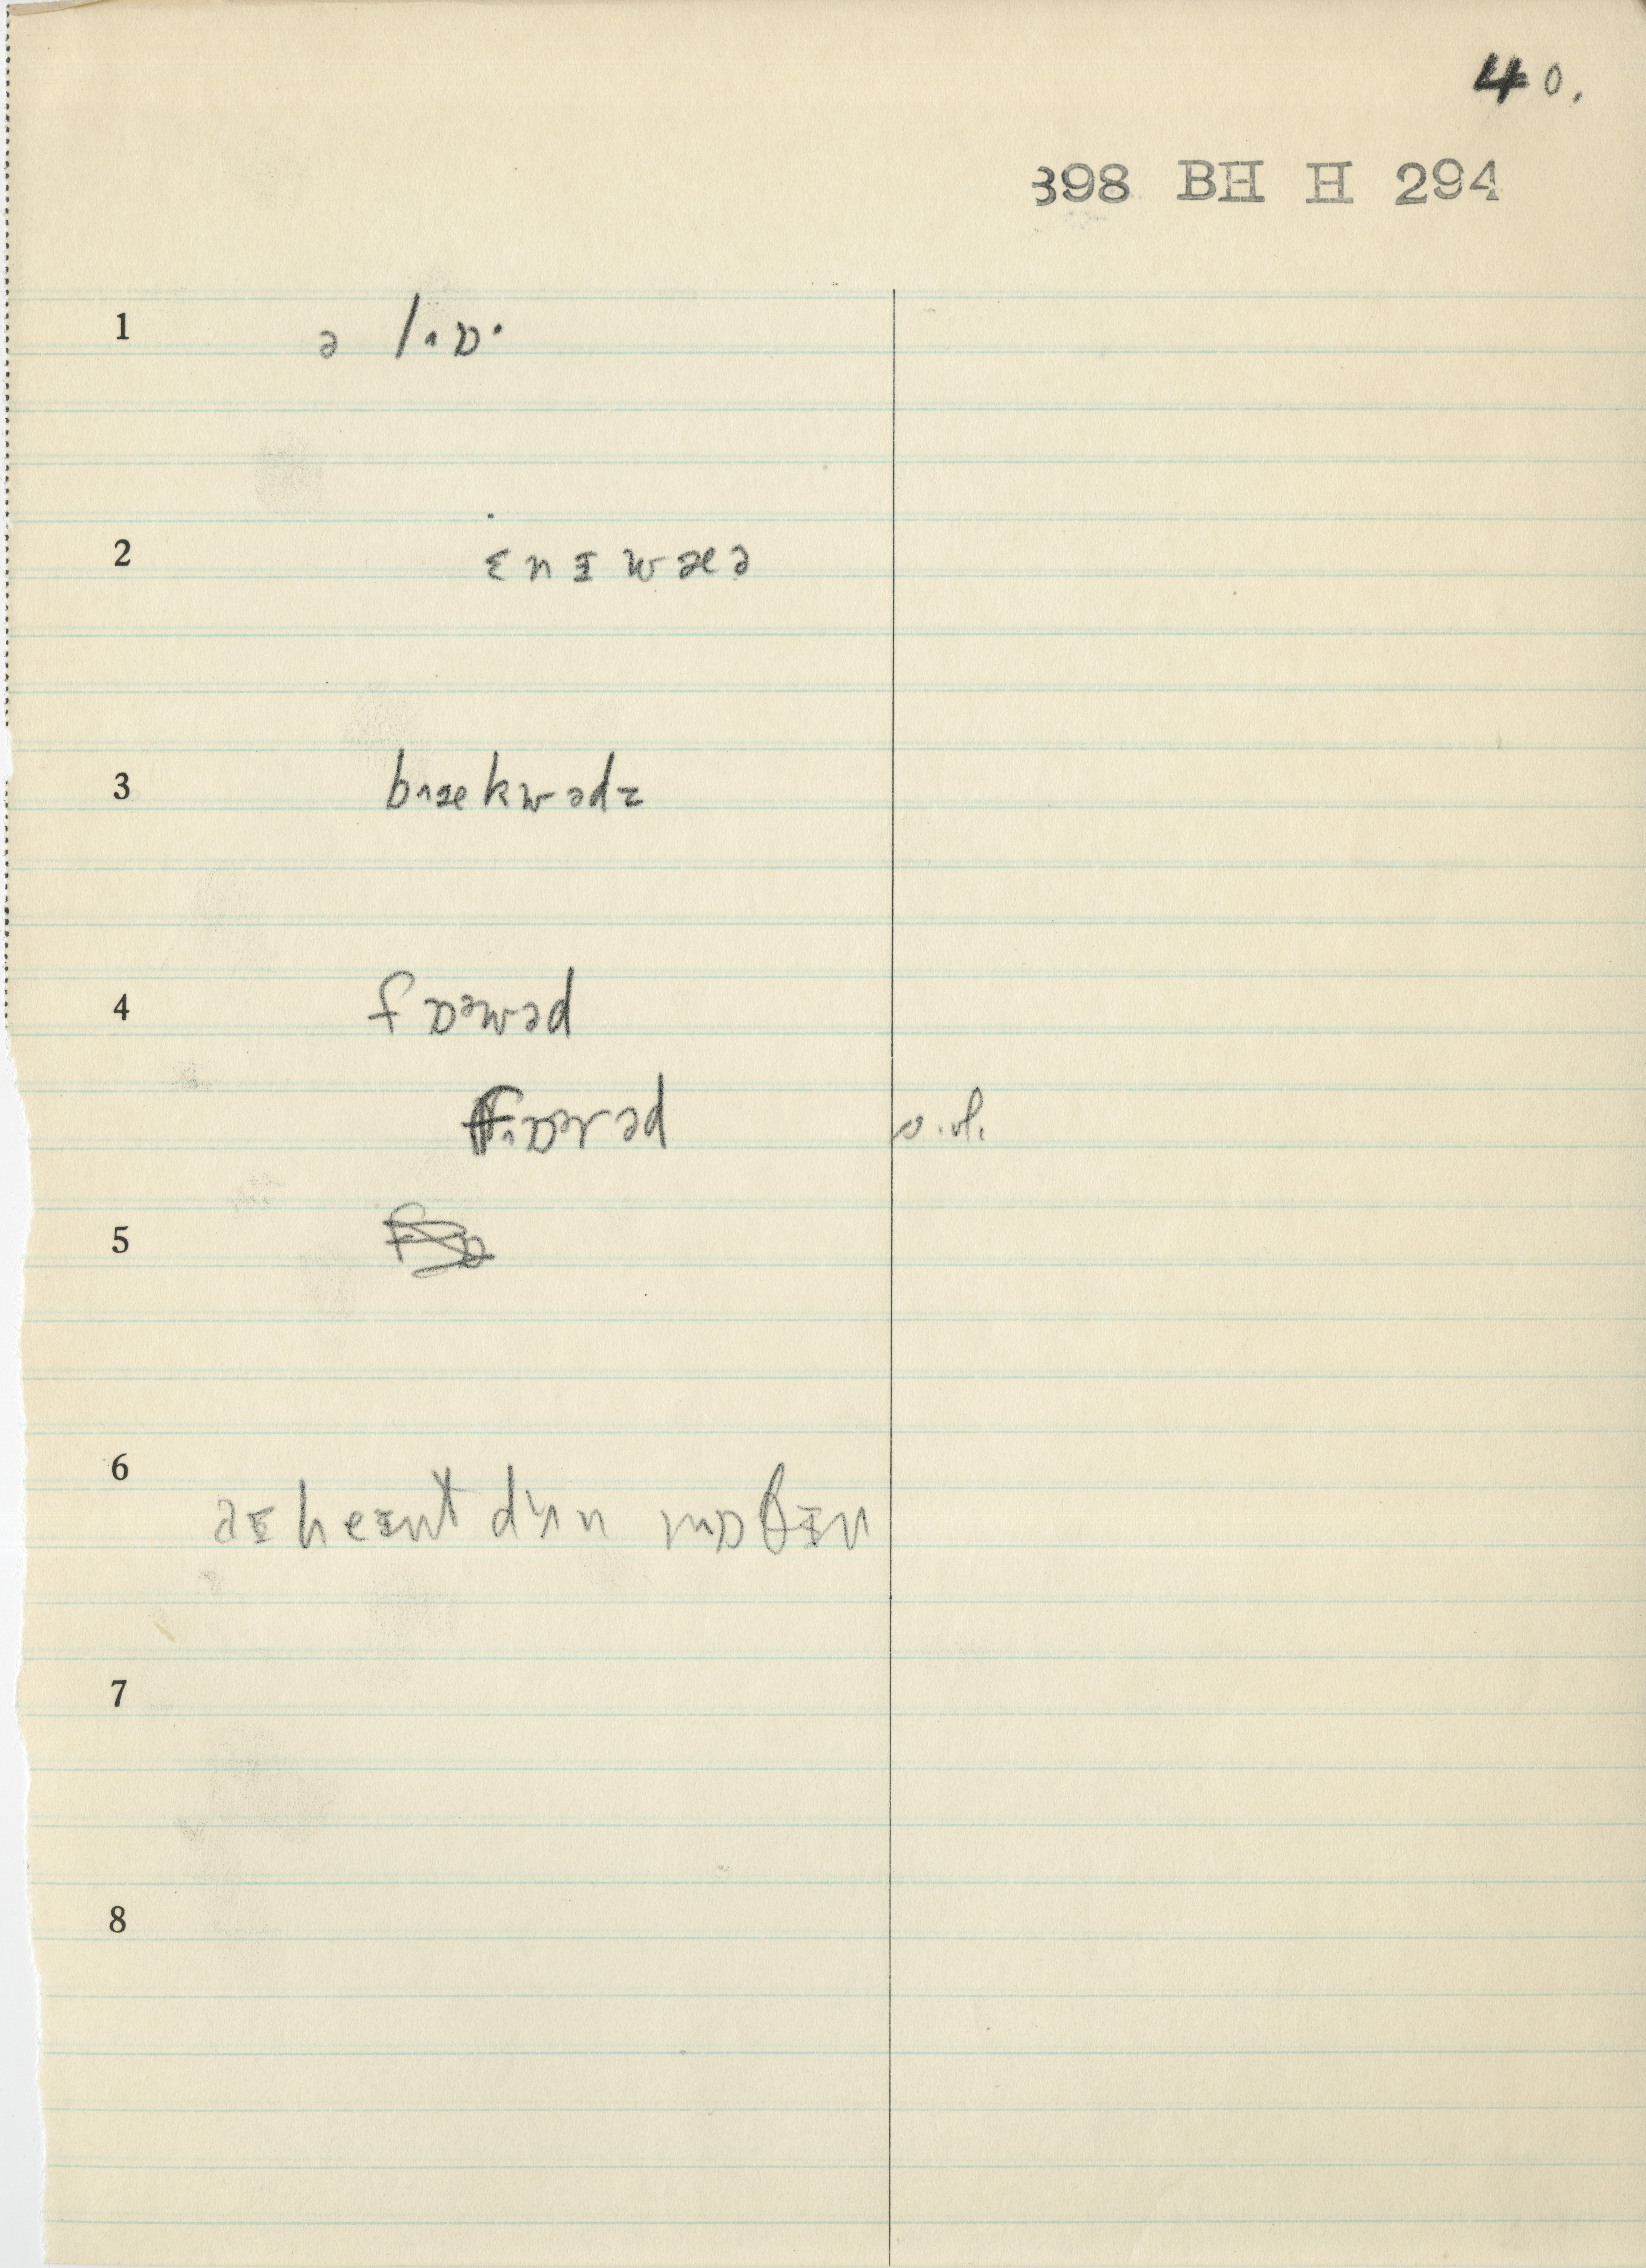 40.
398 BH H 294
1 ə lˑɒ·
2 ɛnɪwæə
3 bækwədz
4 fɒəwəd
fɒərəd
5
6 əɪ heɪnt dʌn nɒθɪn
7
8